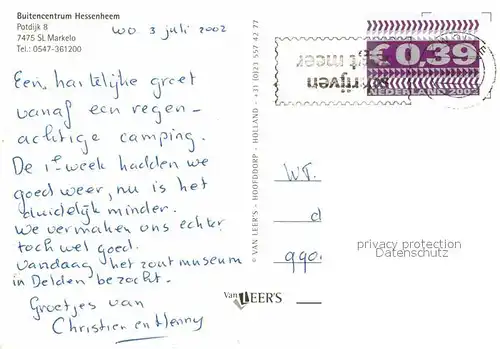 Buitencentrum Hessenheem
Potdijk 8
7475 SL Markelo
Tel.: 0547-361200
wo 3 juli 2002
Een hartelijke groet
vanaf een regen-
achtige camping.
De 1e week hadden we
goed weer, nu is het
duidelijk minder.
We vermaken ons echter
toch wel goed.
Vandaag het zoutmuseum
in Delden bezocht.
Groetjes van
Christien en Henny
© VAN LEER'S - HOOFDDORP - HOLLAND - +31 (0)23 557 42 77
Van LEER'S
schrijven
zegt meer
€ 0,39
NEDERLAND 2002
WF.
d
990.
privacy protection
Datenschutz